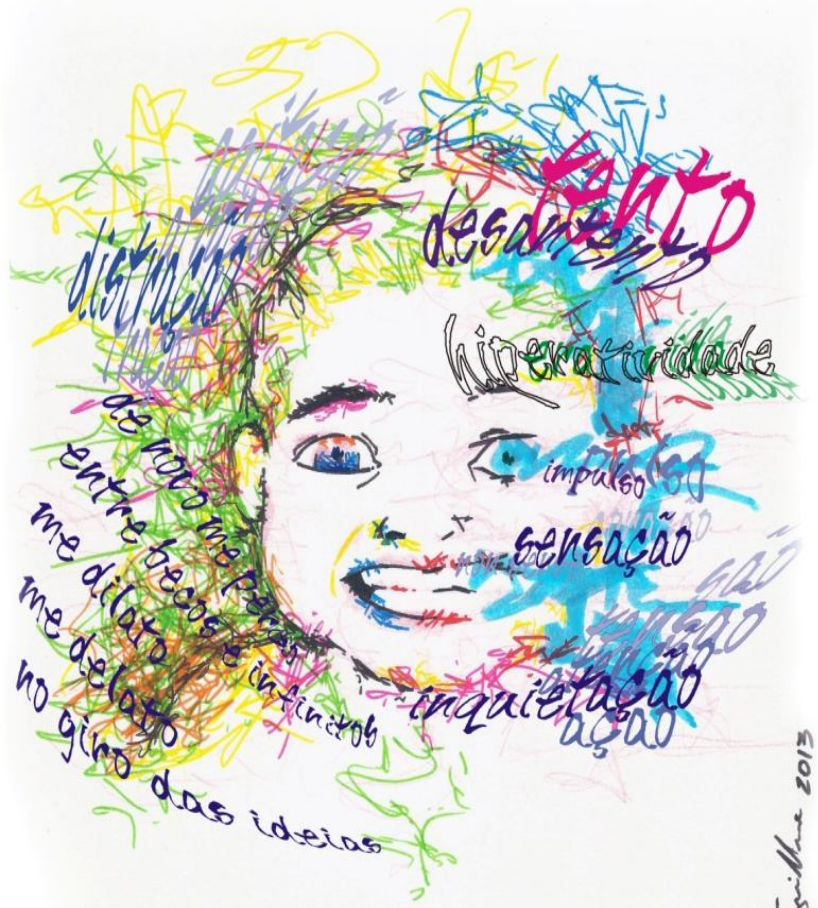 tento
desantento
distração
hiperatividade
impulso
sensação
são
inquietação
ação
de novo me perco
entre becos e infinitos
me dilato
me delato
no giro das ideias
2013